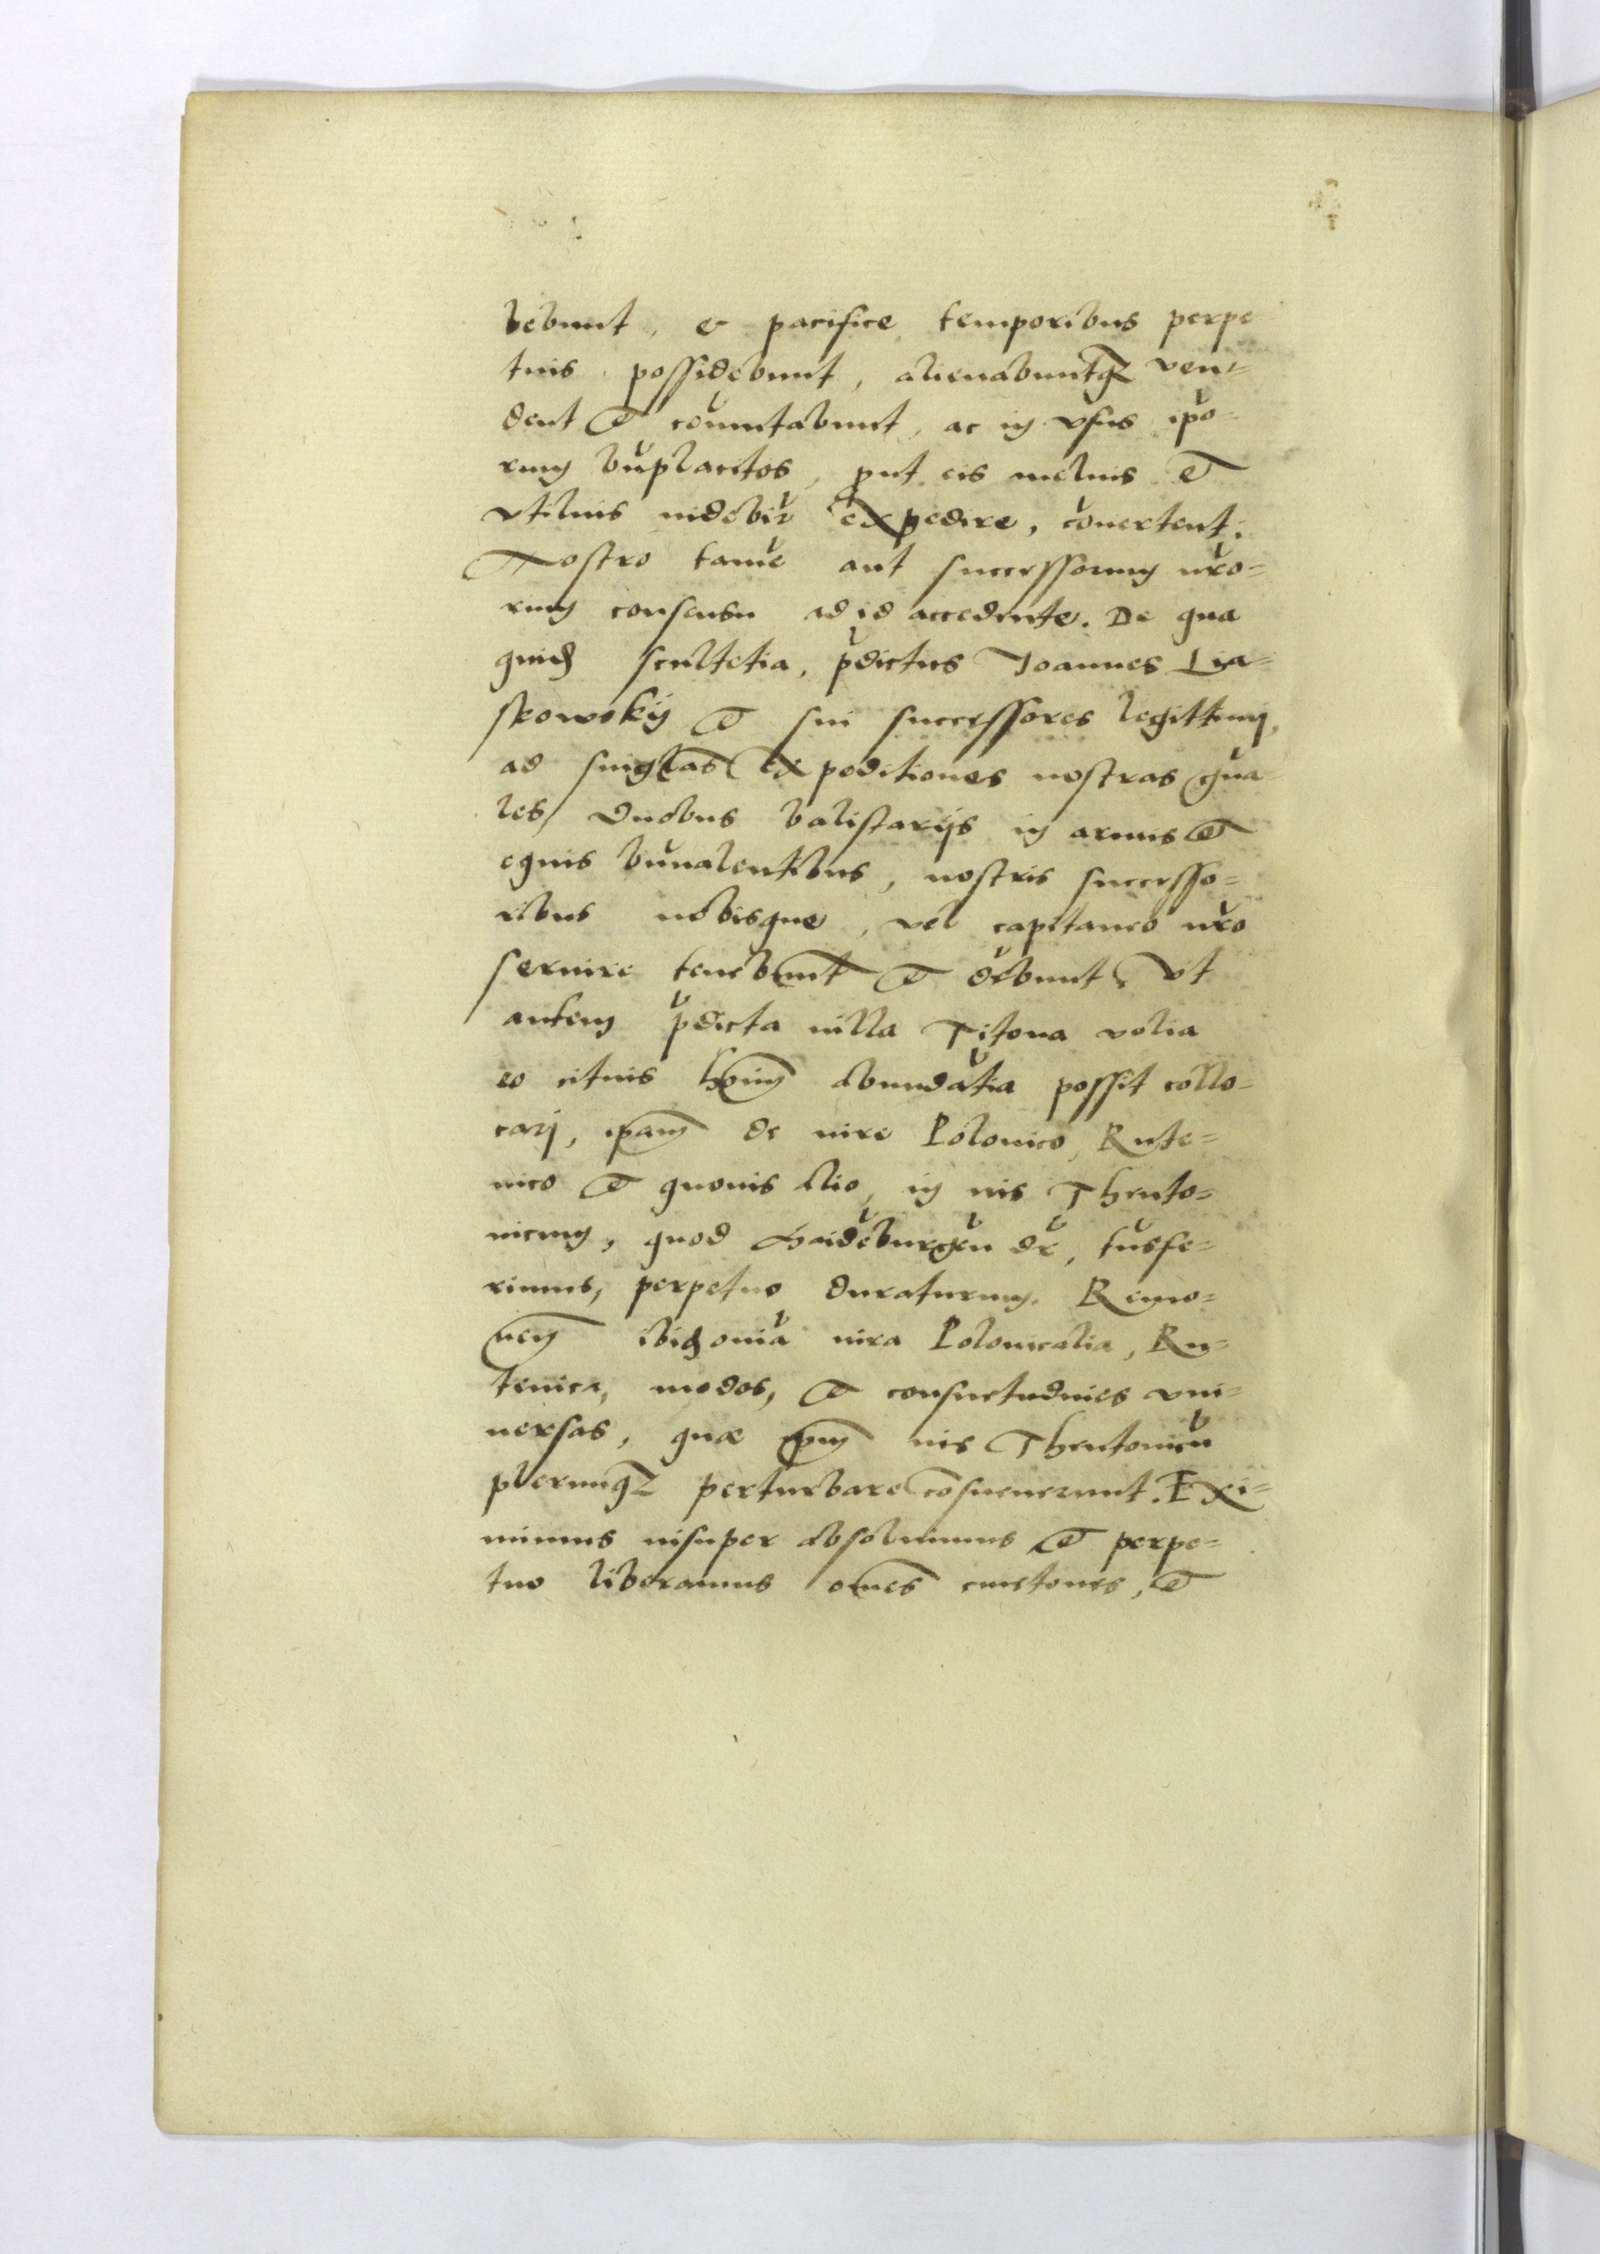 bebunt, & pacifice temporibus perpe
tuis possidebunt, alienabuntqz ven=
dent et comutabunt, ac in vsus ipo=
rum buplacitos, put eis melius et
vtilius videbir expedire, couertent.
Nostro tame aut successorum nro=
rum consensu ad id accedente. De qua
quid scultetia, pdictus Joannes Lia=
skowskij et sui successores legittimj,
ad singlas expeditiones nostras gna
les, duobus balistarijs in armis et
equis bunalentibus, nostris successo=
ribus nobisque, vel capitaneo nro
seruire tenebunt et debunt, Vt
autem pdicta villa Titona volia
eo citius hoim abundatia possit collo=
carj, ipam de iure Polonico, Rute=
nico et quouis alio, in ius Theuto=
nicum, quod Maideburgen dr, trusfe=
rimus, perpetuo duraturum. Remo=
uem ibid omia iura Polonicalia, Ru=
tenica, modos, et consuetudines vni=
uersas, quæ ipm ius Theutonicu
plerumqz perturbare cosueuerunt. Exi=
mimus insuper absoluimus et perpe=
tuo liberamus omes cmetones, et